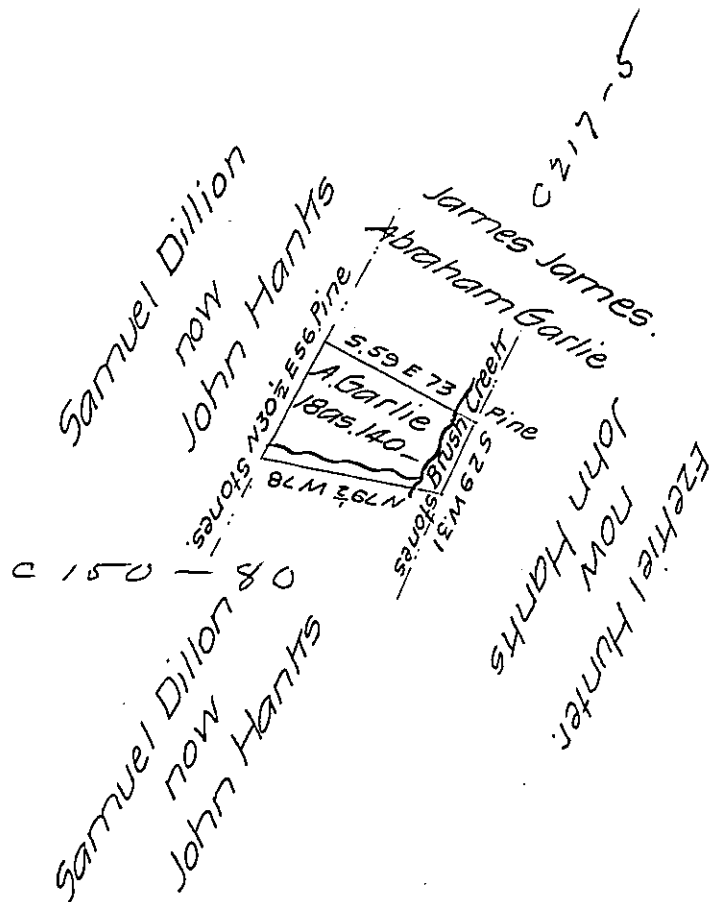 C217-5
Samuel Dillion
now
John Hanks
James James.
Abraham Garlie
N30½ E56. Pine
S. 59 E 73
A. Garlie
18as. 140_
Brush Creek
Pine
S29 W. 31
N79½ W 78
stones.
stones
C 150 - 80
Ezekiel Hunter.
now
John Hanks
Samuel Dillon
now
John Hanks